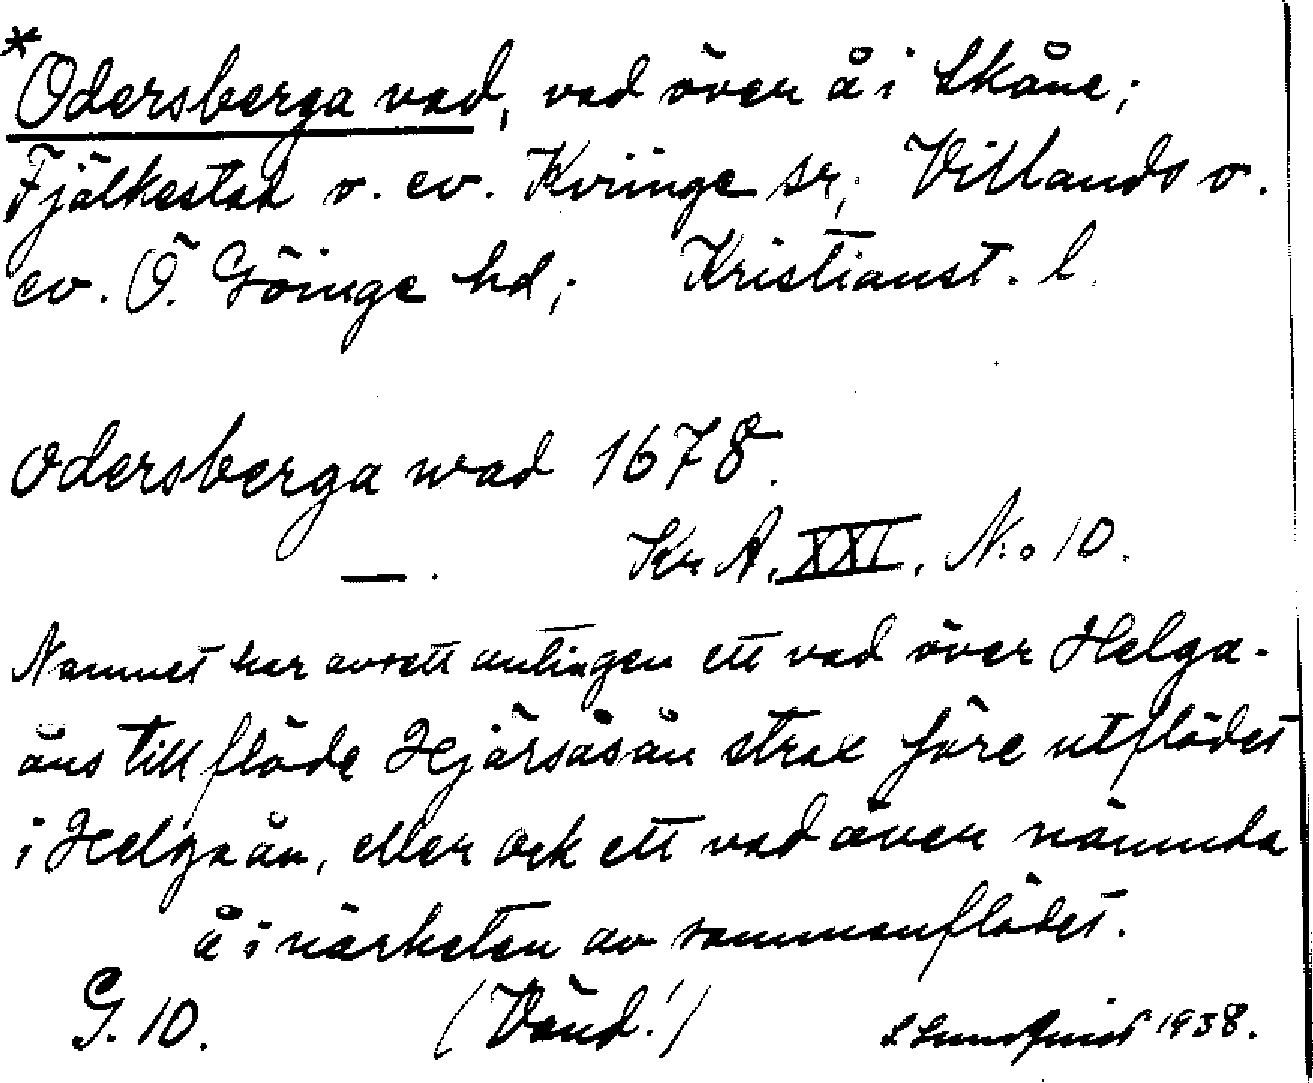 *Odersberga vad, vad över å i Skåne;
Fjälkestad o. ev. Kviinge sr, Villands o.
ev. Ö. Göinge hd; Kristianst. l.
Odersberga wad 1678.
— . Kr A. XXI, N:o 10.
Namnet har avsett antingen ett vad över Helga-
åns tillflöde Hjärsåsån strax före utflödet
i Helgeån, eller ock ett vad över nämnda
å i närheten av sammanflödet.
G. 10. (Vänd!) S Lundquist 1938.